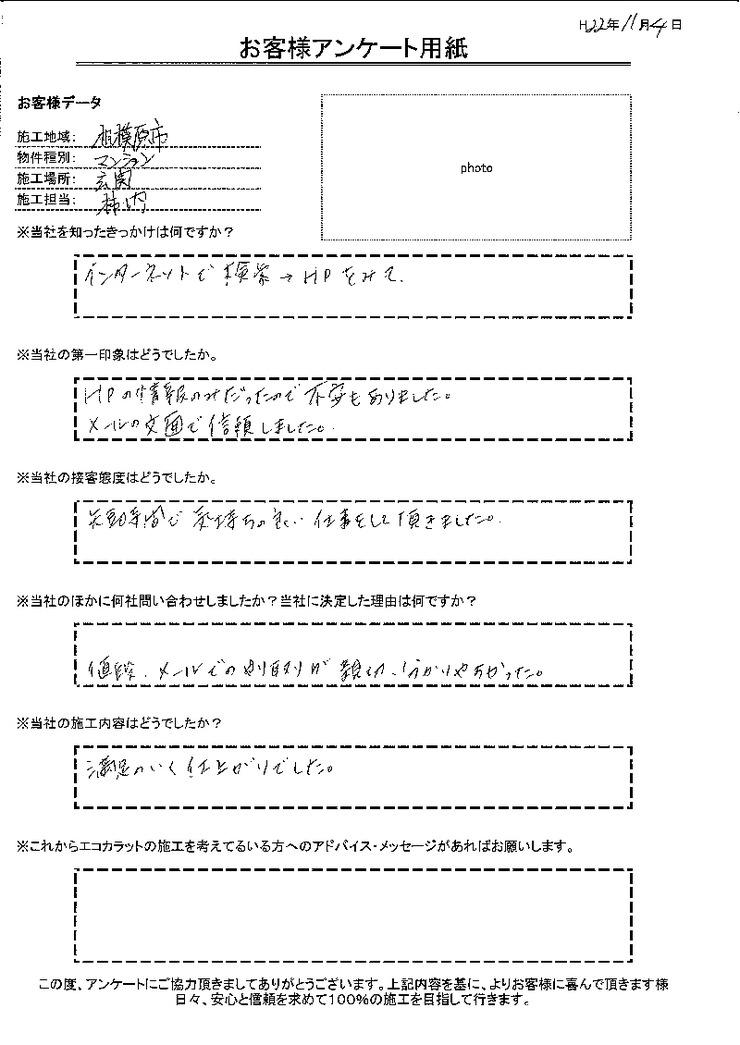 H22年11月4日
お客様アンケート用紙
お客様データ
施工地域: 相模原市
物件種別: マンション
施工場所: 玄関
施工担当: 柿内
photo
※当社を知ったきっかけは何ですか?
インターネットで検索→HPをみて.
※当社の第一印象はどうでしたか。
HPの情報のみだったので不安もありました。
メールの文面で信頼しました。
※当社の接客態度はどうでしたか。
短時間で気持ちの良い仕事をして頂きました。
※当社のほかに何社問い合わせしましたか?当社に決定した理由は何ですか?
値段、メールでのやり取りが親切、分かりやすかった。
※当社の施工内容はどうでしたか?
満足のいく仕上がりでした。
※これからエコカラットの施工を考えてるいる方へのアドバイス・メッセージがあればお願いします。
この度、アンケートにご協力頂きましてありがとうございます。上記内容を基に、よりお客様に喜んで頂きます様
日々、安心と信頼を求めて100%の施工を目指して行きます。